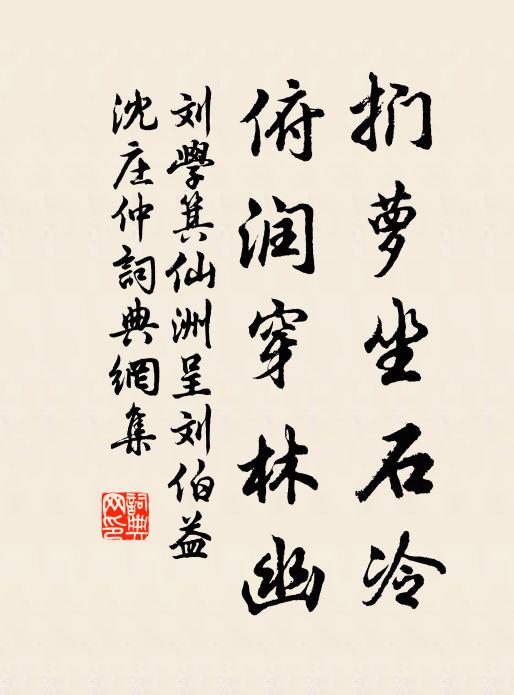 扪萝坐石冷
俯润穿林幽
刘學箕仙洲呈刘伯益
沈庄仲詞典網集
詞典网印